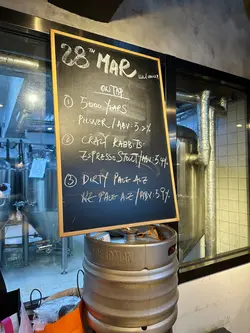 28TH MAR
ON TAP
① 5000 YEARS
PILSNER / ABV: 5.2%
② CRAZY RABBITS
ESPRESSO STOUT / ABV: 5.9%
③ DIRTY PALE A-Z
NE PALE A-Z / ABV: 5.9%